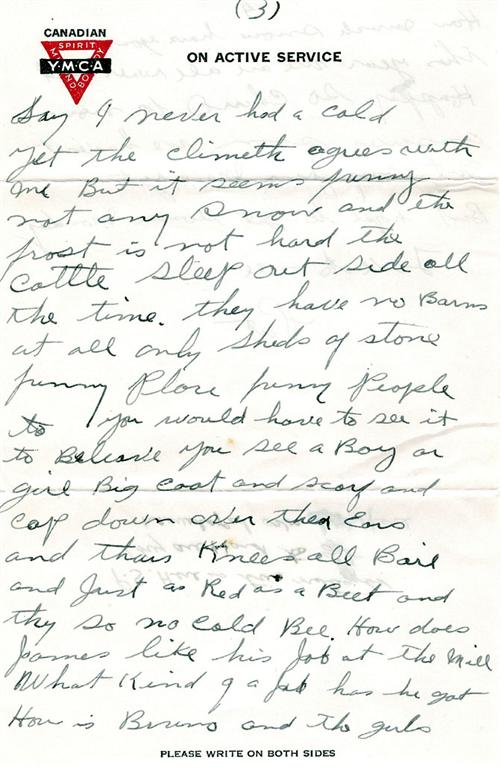 (3)
CANADIAN
SPIRIT
Y·M·C·A
MIND
BODY
ON ACTIVE SERVICE
Say I never had a cold
yet the climeth agrees with
me But it seems funny
not any snow and the
frost is not hard the
Cattle sleep out side all
the time. they have no Barns
at all only sheds of stone
funny Place funny People
to you would have to see it
to Beleave you see a Boy or
girl Big coat and scarf and
cap down over thea Ears
and thair Knees all Bair
and Just as Red as a Beet and
thy so no cold Bee. How does
James like his Job at the Mill
What Kind of a Job has he got
How is Bruno and the girls
PLEASE WRITE ON BOTH SIDES